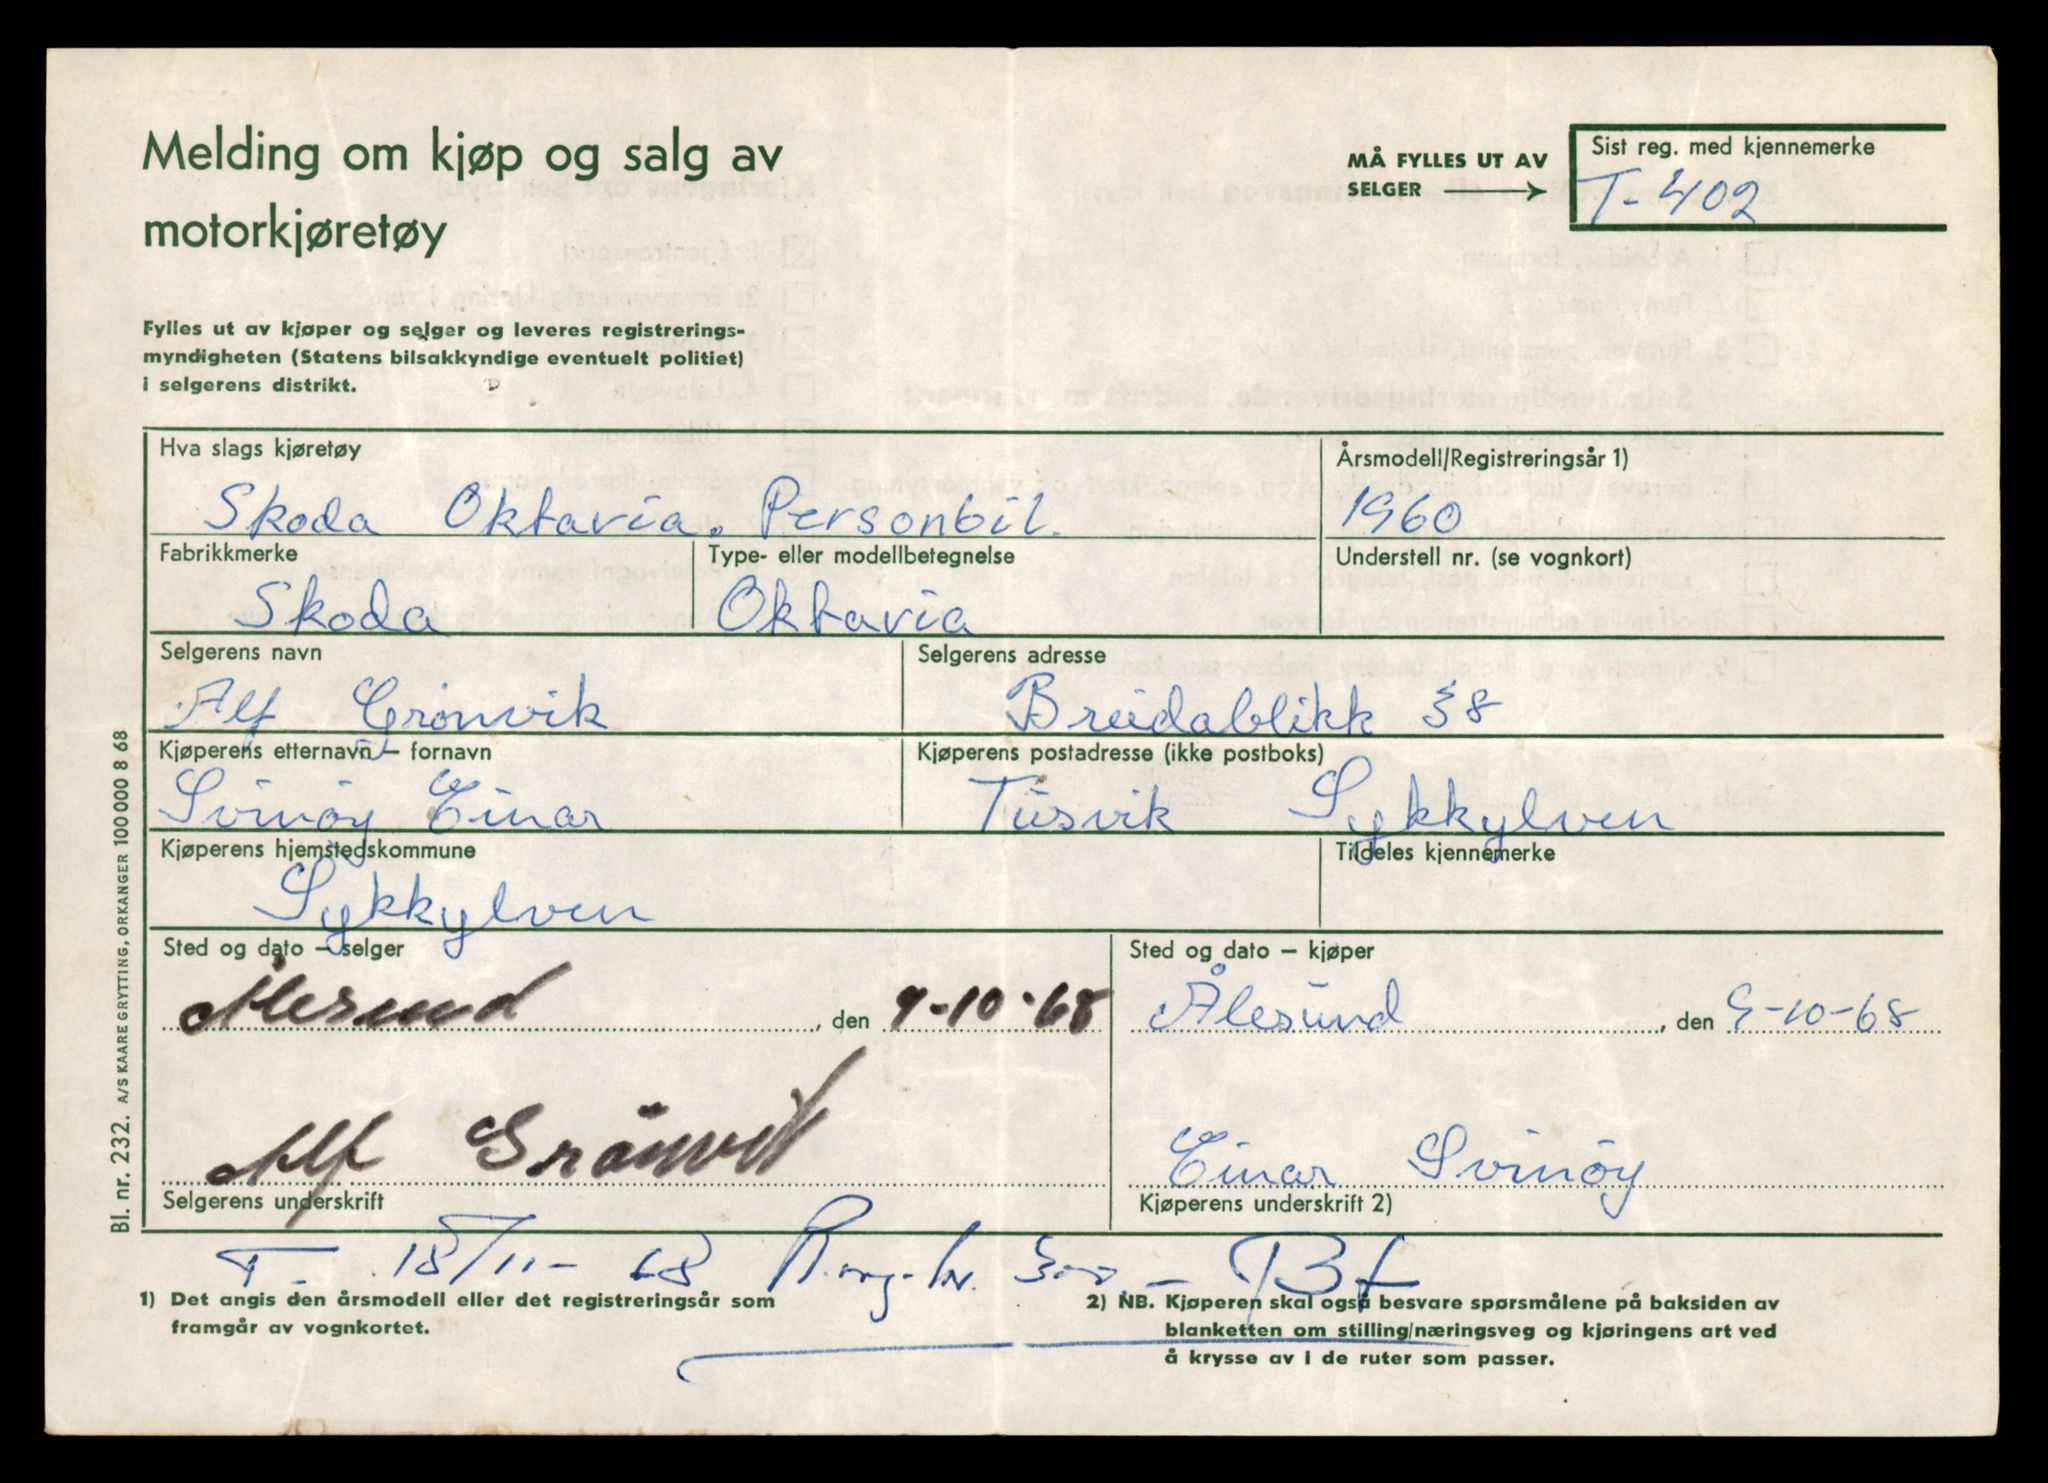 Melding om kjøp og salg av
motorkjøretøy
MÅ FYLLES UT AV
SELGER
Sist reg. med kjennemerke
T-402
Fylles ut av kjøper og selger og leveres registrerings-
myndigheten (Statens bilsakkyndige eventuelt politiet)
i selgerens distrikt.
Hva slags kjøretøy
Skoda Oktavia. Personbil.
Årsmodell/Registreringsår 1)
1960
Fabrikkmerke
Skoda
Type- eller modellbetegnelse
Oktavia
Understell nr. (se vognkort)
Selgerens navn
Alf Grönvik
Selgerens adresse
Breidablikk 38
Kjøperens etternavn – fornavn
Svinöy Einar
Kjøperens postadresse (ikke postboks)
Tusvik Sykkylven
Kjøperens hjemstedskommune
Sykkylven
Tildeles kjennemerke
Sted og dato – selger
Ålesund, den 9-10-68
Sted og dato – kjøper
Ålesund, den 9-10-68
Alf Grönvik
Selgerens underskrift
Einar Svinöy
Kjøperens underskrift 2)
T- 18/11- 68
1) Det angis den årsmodell eller det registreringsår som
framgår av vognkortet.
2) NB. Kjøperen skal også besvare spørsmålene på baksiden av
blanketten om stilling/næringsveg og kjøringens art ved
å krysse av i de ruter som passer.
Bl. nr. 232. A/S KAARE GRYTTING, ORKANGER 100 000 8 68